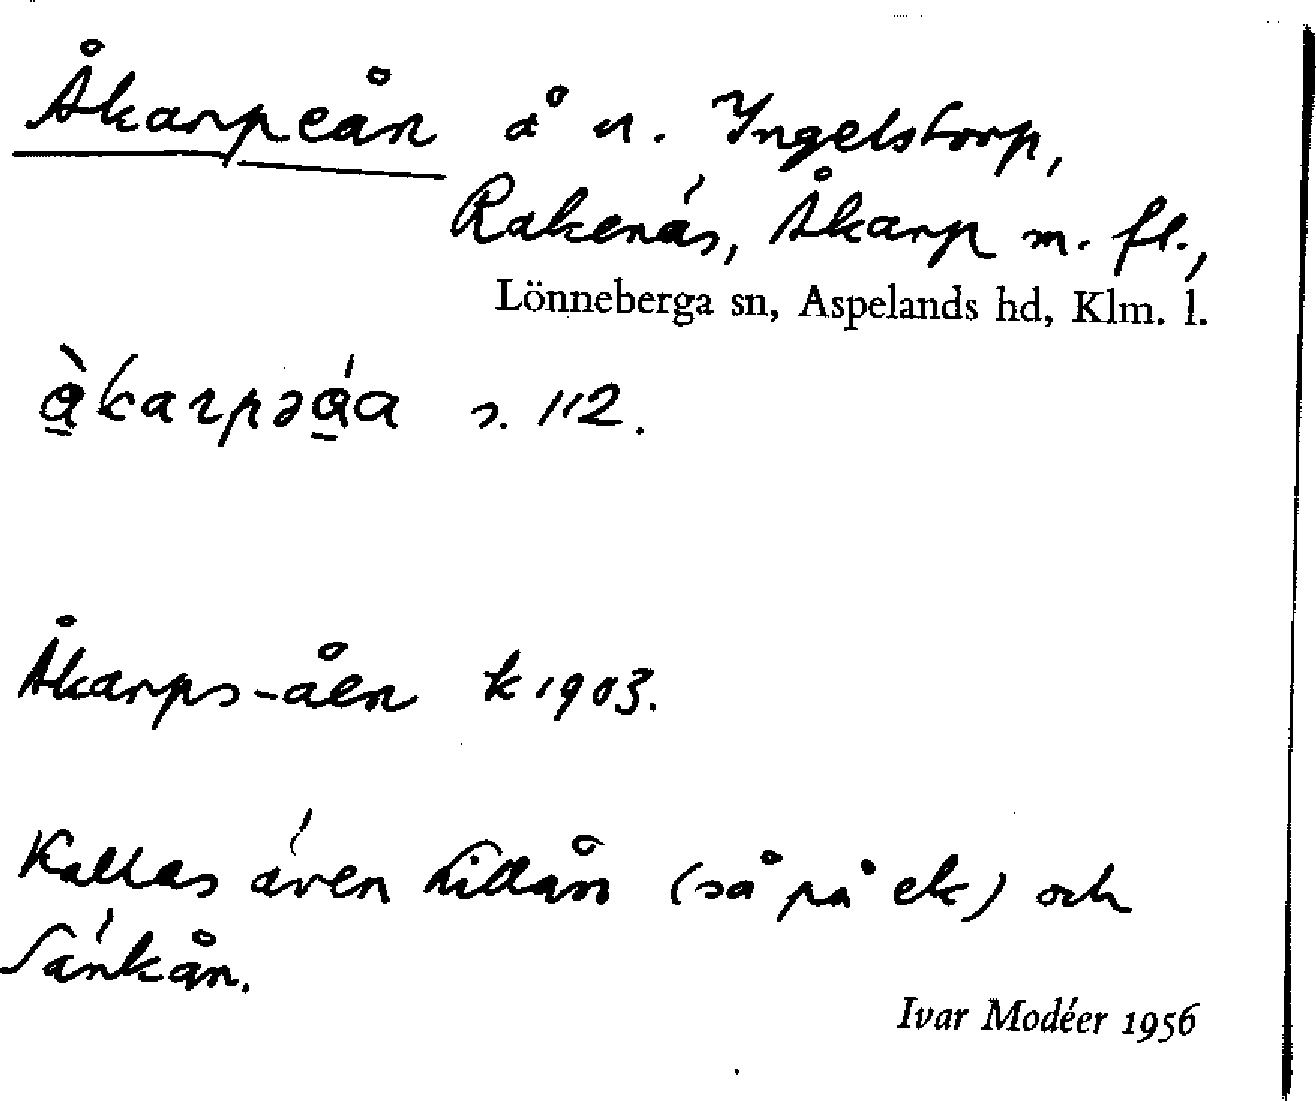 Åkarpeån å n. Ingelstorp,
Rakenäs, Åkarp m. fl.,
Lönneberga sn, Aspelands hd, Klm. l.
å̱̀karpəǻ̱a s. 112.
Åkarps-åen k 1903.
Kallas även Lillån (så på ek) och
Sänkån.
Ivar Modéer 1956